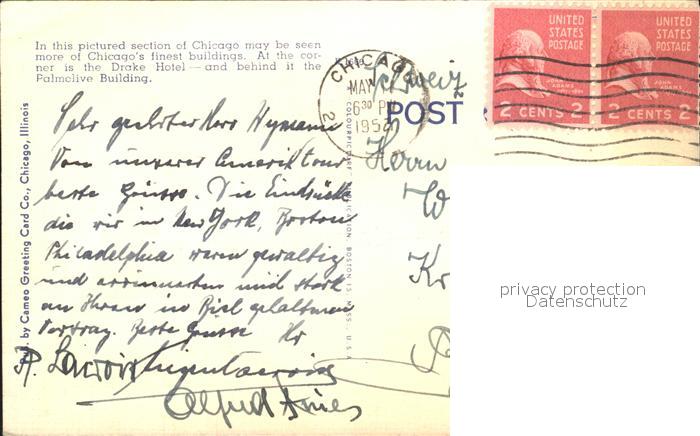 In this pictured section of Chicago may be seen
more of Chicago's finest buildings. At the cor-
ner is the Drake Hotel — and behind it the
Palmolive Building.
Pub. by Cameo Greeting Card Co., Chicago, Illinois
CHICAGO
MAY
6 30 PM
1952
2
Schweiz
POST
UNITED
STATES
POSTAGE
JOHN
ADAMS
2 CENTS 2
UNITED
STATES
POSTAGE
JOHN
ADAMS
2 CENTS 2
Sehr geehrter Herr Hymann
Von unserer Amerikatour
beste Grüsse. Die Eindrücke
die wir in New York, Boston
Philadelphia waren gewaltig
und erinnerten mich stark
an Ihren in Biel gehaltenen
Vortrag. Beste Grüsse Ihr
Alfred
Herrn
W
Kr
privacy protection
Datenschutz